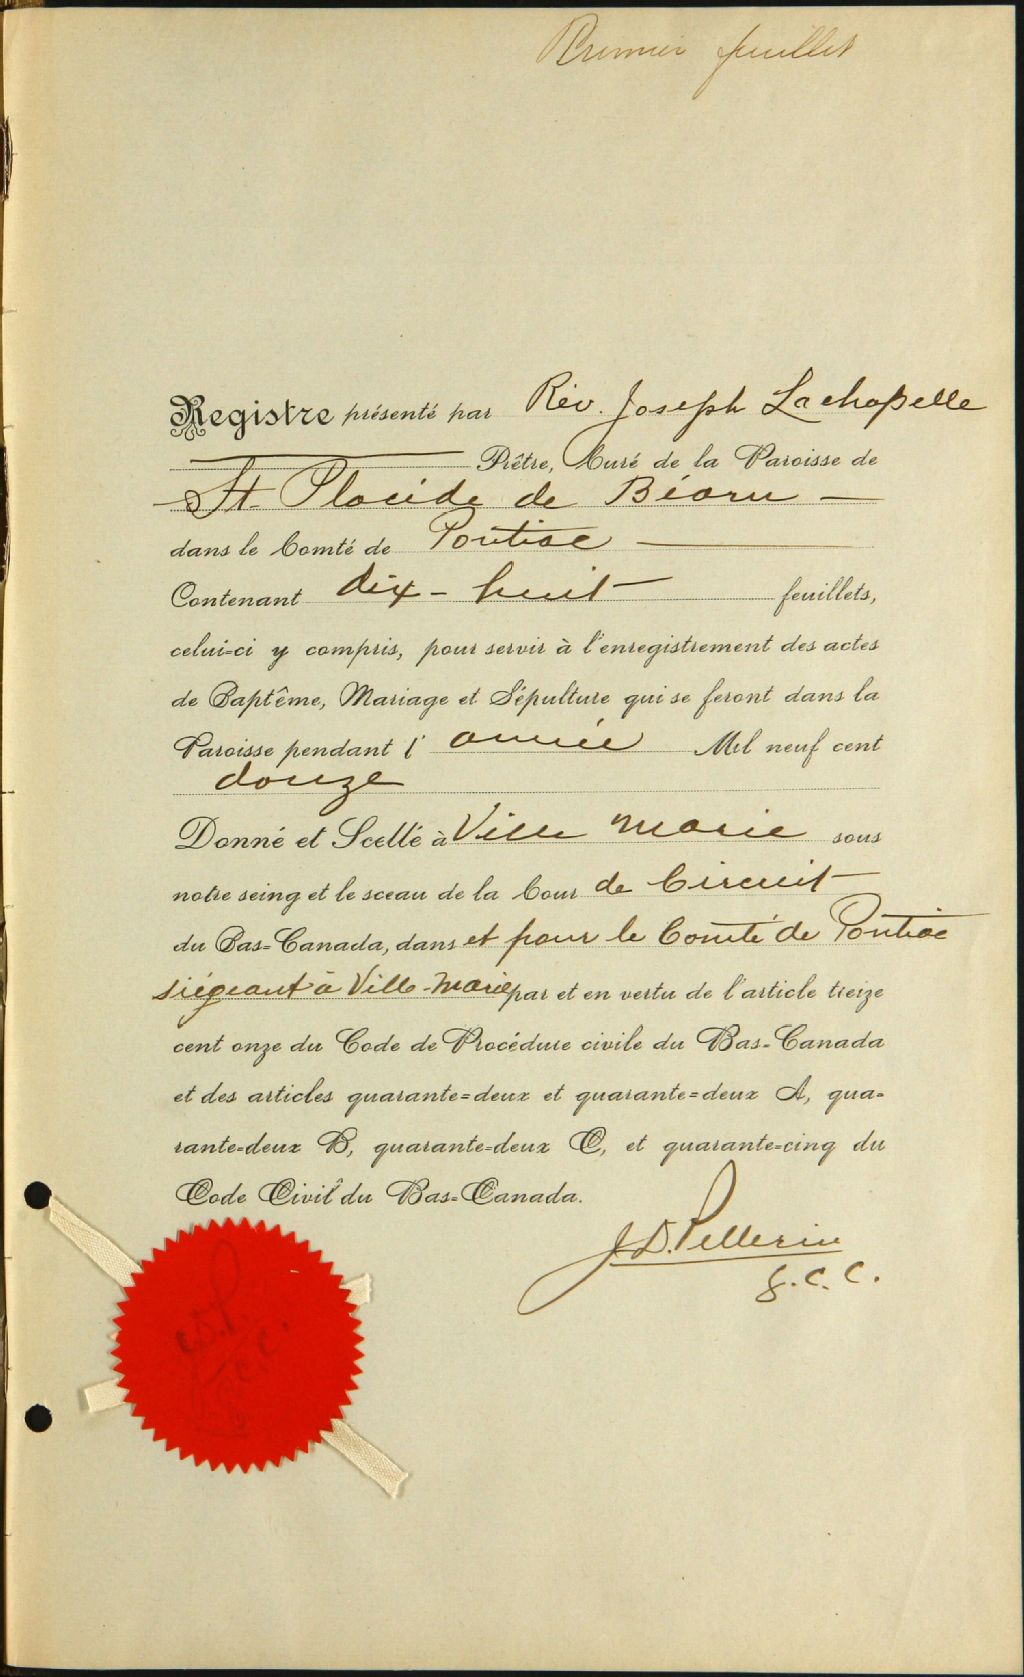 Premier feuillet
Registre présenté par Rév. Joseph Lachapelle
Prêtre, Curé de la Paroisse de
St Placide de Béarn
dans le Comté de Pontiac
Contenant dix-huit feuillets,
celui-ci y compris, pour servir à l'enregistrement des actes
de Baptême, Mariage et Sépulture qui se feront dans la
Paroisse pendant l'année Mil neuf cent
douze
Donné et Scellé à Ville Marie sous
notre seing et le sceau de la Cour de Circuit
du Bas-Canada, dans et pour le Comté de Pontiac
siégeant à Ville-Marie par et en vertu de l'article treize
cent onze du Code de Procédure civile du Bas-Canada
et des articles quarante-deux et quarante-deux A, qua-
rante-deux B, quarante-deux C, et quarante-cinq du
Code Civil du Bas-Canada.
J.D. Pellerin
g.c.c.